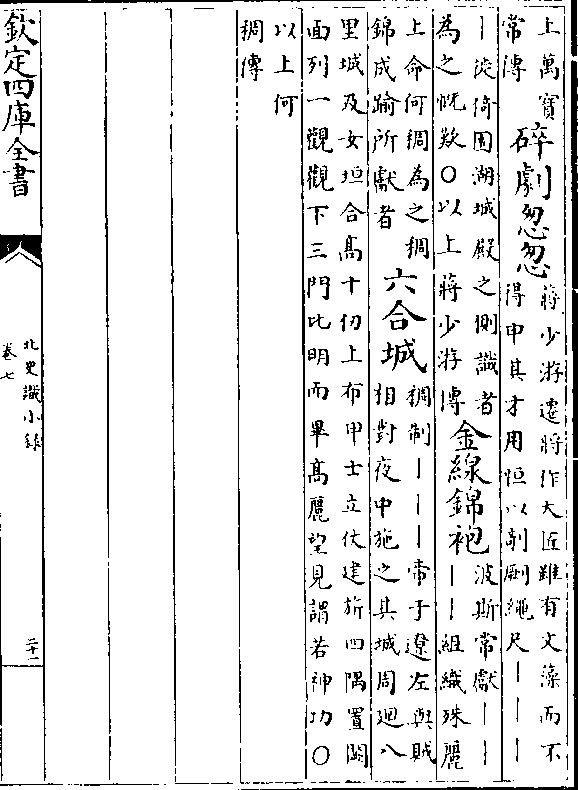 上萬寶
常傳
碎劇忽忽
蔣少游遷將作大匠雖有文藻而不
得申其才用恒以剞劂繩尺｜｜｜
｜徙倚園湖城殿之側識者
為之慨歎〇以上蔣少游傳
金線錦袍
波斯常獻｜｜
｜｜組織殊麗
上命何稠為之稠
錦成踰所獻者
六合城
稠制｜｜｜帝于遼左與賊
相對夜中施之其城周廻八
里城及女垣合高十仞上布甲士立仗建旂四隅置闕
面列一觀觀下三門比明而畢高麗望見謂若神功〇
以上何
稠傳
欽定四庫全書
北史識小錄
卷七
二十一